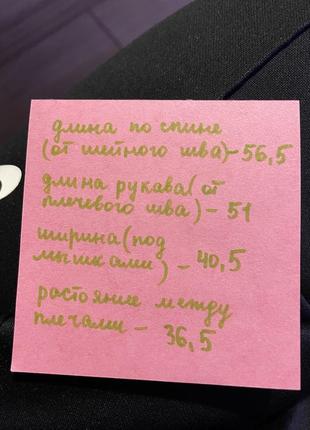 длина по спине
(от шейного шва)-56,5
длина рукава(от
плечевого шва) - 51
ширина(под
мышками) - 40,5
растояние между
плечами - 36,5